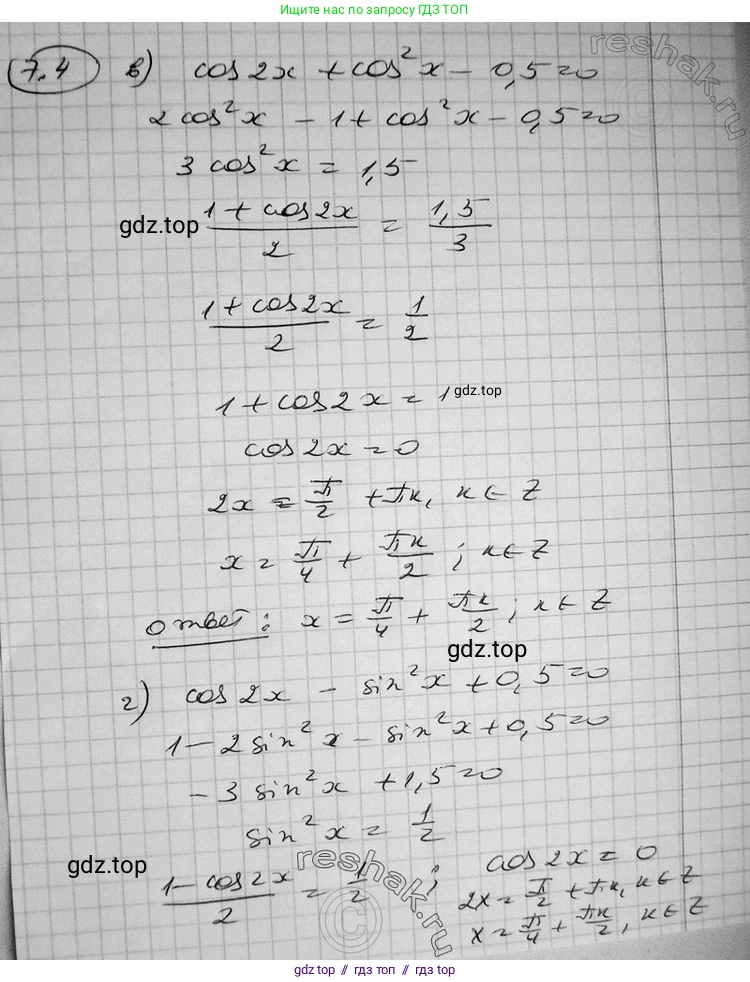 Ищите нас по запросу ГДЗ ТОП
7.4 в) cos2x + cos²x − 0,5=0
2cos²x − 1 + cos²x − 0,5=0
3cos²x = 1,5
(1 + cos2x)/2 = 1,5/3
gdz.top
(1 + cos2x)/2 = 1/2
1 + cos2x = 1
gdz.top
cos2x = 0
2x = π/2 + πk, k ∈ Z
x = π/4 + πk/2; k ∈ Z
ответ: x = π/4 + πk/2; k ∈ Z
gdz.top
г) cos2x − sin²x + 0,5=0
1 − 2sin²x − sin²x + 0,5=0
−3sin²x + 1,5=0
sin²x = 1/2
gdz.top
(1 − cos2x)/2 = 1/2 ; cos2x = 0
2x = π/2 + πk, k ∈ Z
x = π/4 + πk/2, k ∈ Z
reshak.ru
reshak.ru
gdz.top // gdz.top // gdz.top // gdz.top